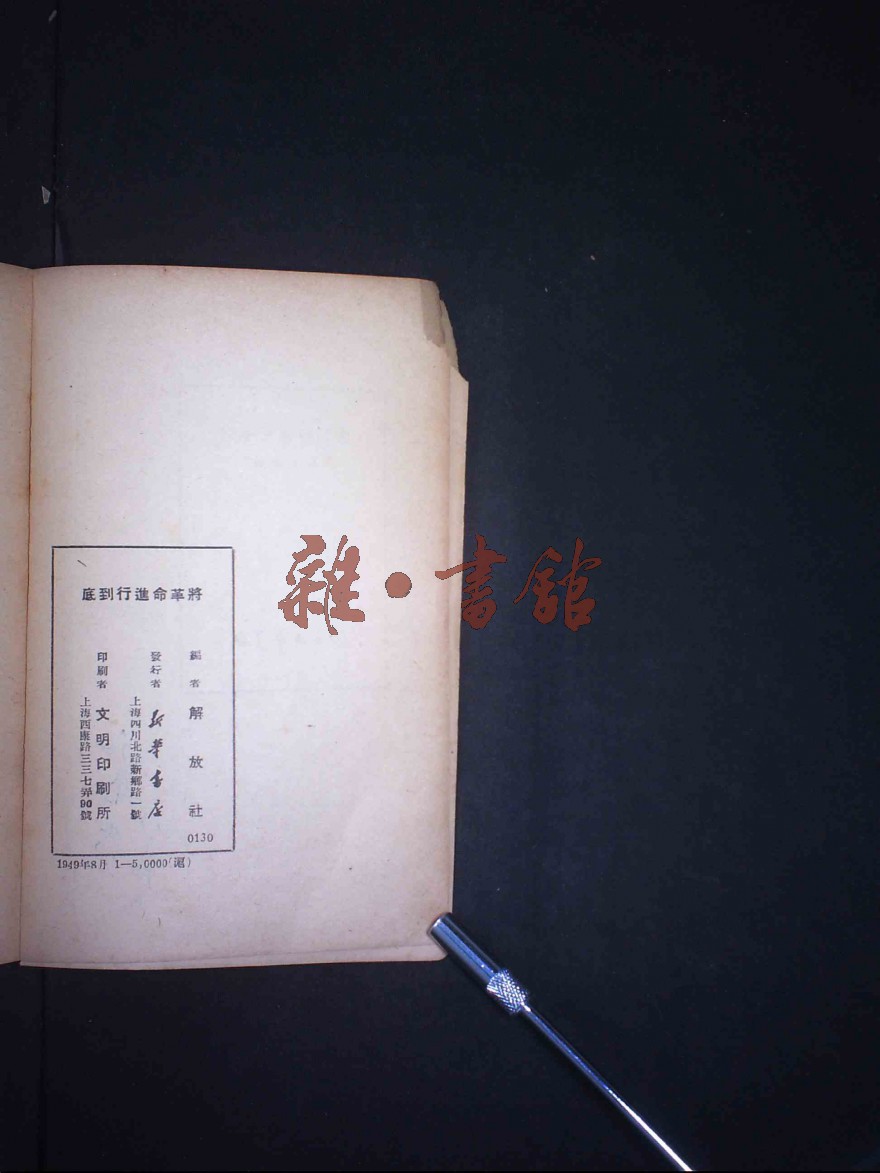 將革命進行到底
編者 解放社
發行者 新華書店
上海四川北路新鄉路一號
印刷者 文明印刷所
上海西康路三三七弄90號
0130
1949年8月 1—5,0000(滬)
雜•書館